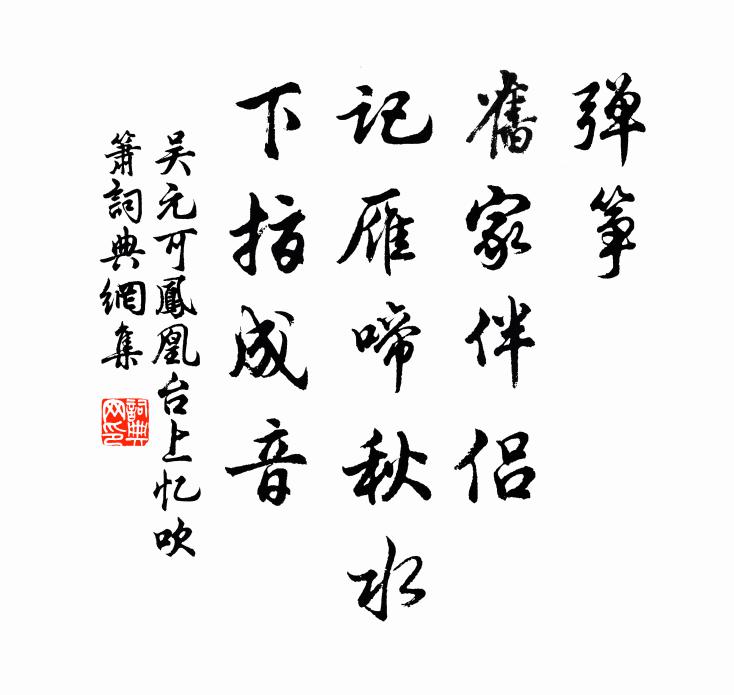 弹筝
舊家伴侣
记雁啼秋水
下指成音
吴元可鳳凰台上忆吹
箫詞典網集
詞典
网印